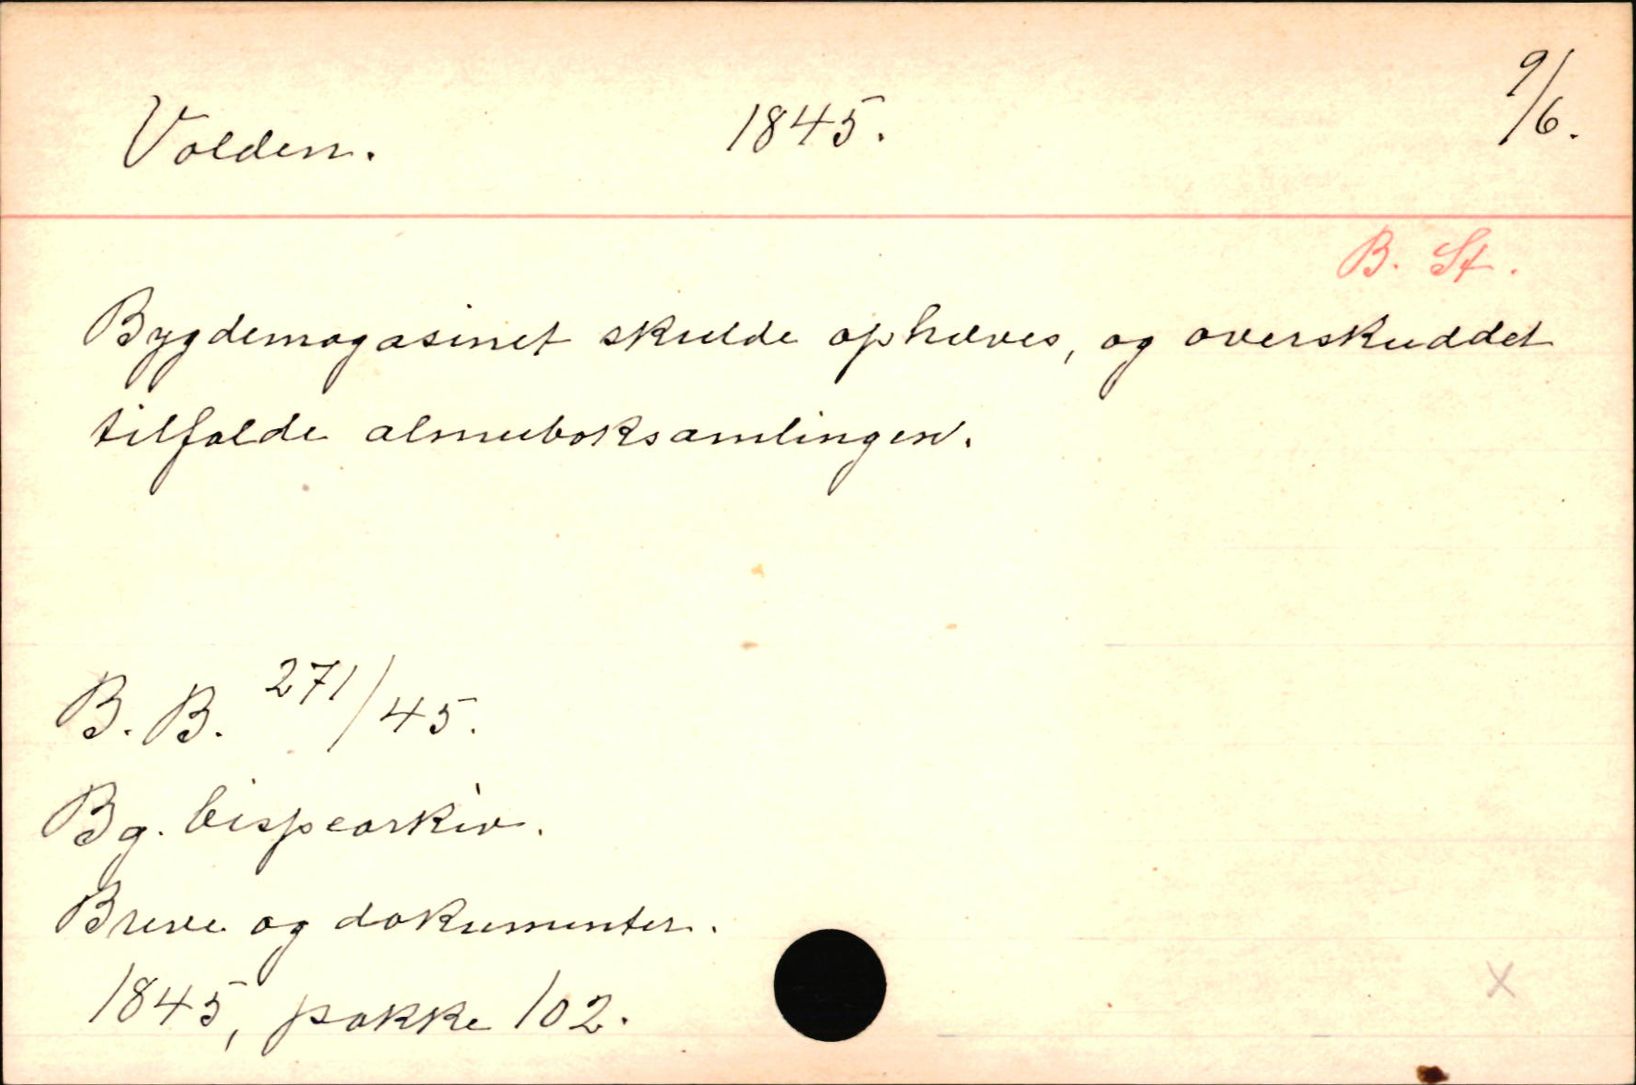 Volden. 1845. 9/6.
B. St.
Bygdemagasinet skulde ophæves, og overskuddet
tilfalde almueboksamlingen.
B. B. 271/45.
Bg. bispearkiv.
Breve og dokumenter.
1845, pakke 102.
X